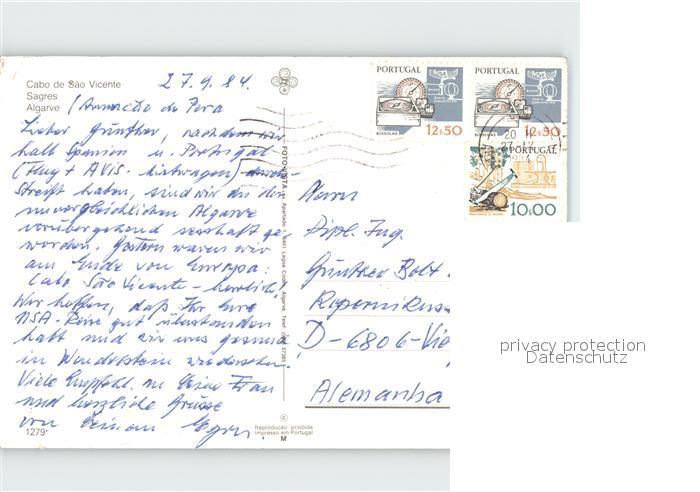 Cabo de São Vicente
Sagres
Algarve
27.9.84.
(Armação de Pera
Lieber Günther, nachdem wir
halb Spanien u. Portugal
(Flug + AVIS-Mietwagen) durch-
streift haben, sind wir an der
unvergleichlichen Algarve
vorübergehend sesshaft ge-
worden. Gestern waren wir
am Ende von Europa:
Cabo São Vicente - herrlich!
Wir hoffen, daß Ihr Eure
USA-Reise gut überstanden
habt und wir uns gesund
in Wendelstein wiedersehen.
Viele Empfehl. an Deine Frau
und herzliche Grüsse
von Deinem Egon.
1279
FOTO VISTA
Reprodução proibida
Impresso em Portugal
M
PORTUGAL
BÚSSOLAS
12$50
PORTUGAL
12$50
PORTUGAL
10$00
Herrn
Dipl. Ing.
Günther Bolt
Kopernikuss
D-6806-Vie
Alemanha
privacy protection
Datenschutz